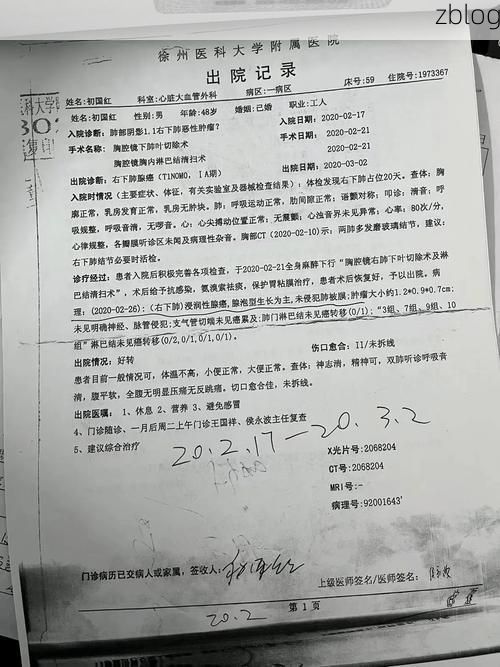 zblog
徐州医科大学附属医院
出院记录
姓名:初国红 科室:心脏大血管外科 病区:一病区 床号:59 住院号:1973367
姓名:初国红 性别:男 年龄:48岁 婚姻:已婚 职业:工人
入院诊断:肺部阴影1.1右下肺恶性肿瘤? 入院日期:2020-02-17
手术名称: 胸腔镜下肺叶切除术 手术日期:2020-02-21
胸腔镜胸内淋巴结清扫术 2020-02-21
出院诊断:右下肺腺癌(T1N0M0,ⅠA期) 出院日期:2020-03-02
入院时情况(主要症状、体征,有关实验室及器械检查结果):体检发现右下肺占位20天。查体:胸
廓正常,乳房发育正常,乳房无肿块。肺:呼吸运动正常,肋间隙正常;语颤对称;叩诊:清音;呼
吸规整,呼吸音清,无啰音。心:心尖搏动位置正常;无震颤;心浊音界未见异常;心率:80次/分,
心律规整,各瓣膜听诊区未闻及病理性杂音。胸部CT(2020-02-10)示:两肺多发磨玻璃结节,建议:
右下肺结节必要时活检。
诊疗经过:患者入院后积极完善各项检查,于2020-02-21全身麻醉下行“胸腔镜右肺下叶切除术及淋
巴结清扫术”,术后给予抗感染,氨溴索祛痰,保护胃粘膜治疗,患者术后恢复好,予以出院。病
理:(2020-02-26):(右下肺)浸润性腺癌,腺泡型生长为主,未侵犯肺被膜;肿瘤大小约1.2*0.9*0.7cm;
未见明确神经、脉管侵犯;支气管切端未见癌累及;肺门淋巴结未见癌转移(0/1);“3组、7组、9组、10
组”淋巴结未见癌转移(0/2,0/1,0/1,0/1)。
出院情况:好转 伤口愈合:II/未拆线
患者目前一般情况可,体温不高,小便正常,大便正常。查体:神志清,精神可,双肺听诊呼吸音
清,腹平软,全腹无明显压痛无反跳痛。切口愈合佳,未拆线。
出院医嘱: 1、休息 2、营养 3、避免感冒
4、门诊随诊、一月后周二上午门诊王国祥、侯永波主任复查
5、建议综合治疗
20.2.17—20.3.2
X光片号:2068204
CT号:2068204
MRI号:-
病理号:92001643'
门诊病历已交病人或家属,签收人:
上级医师签名/医师签名:
第1页
20.2